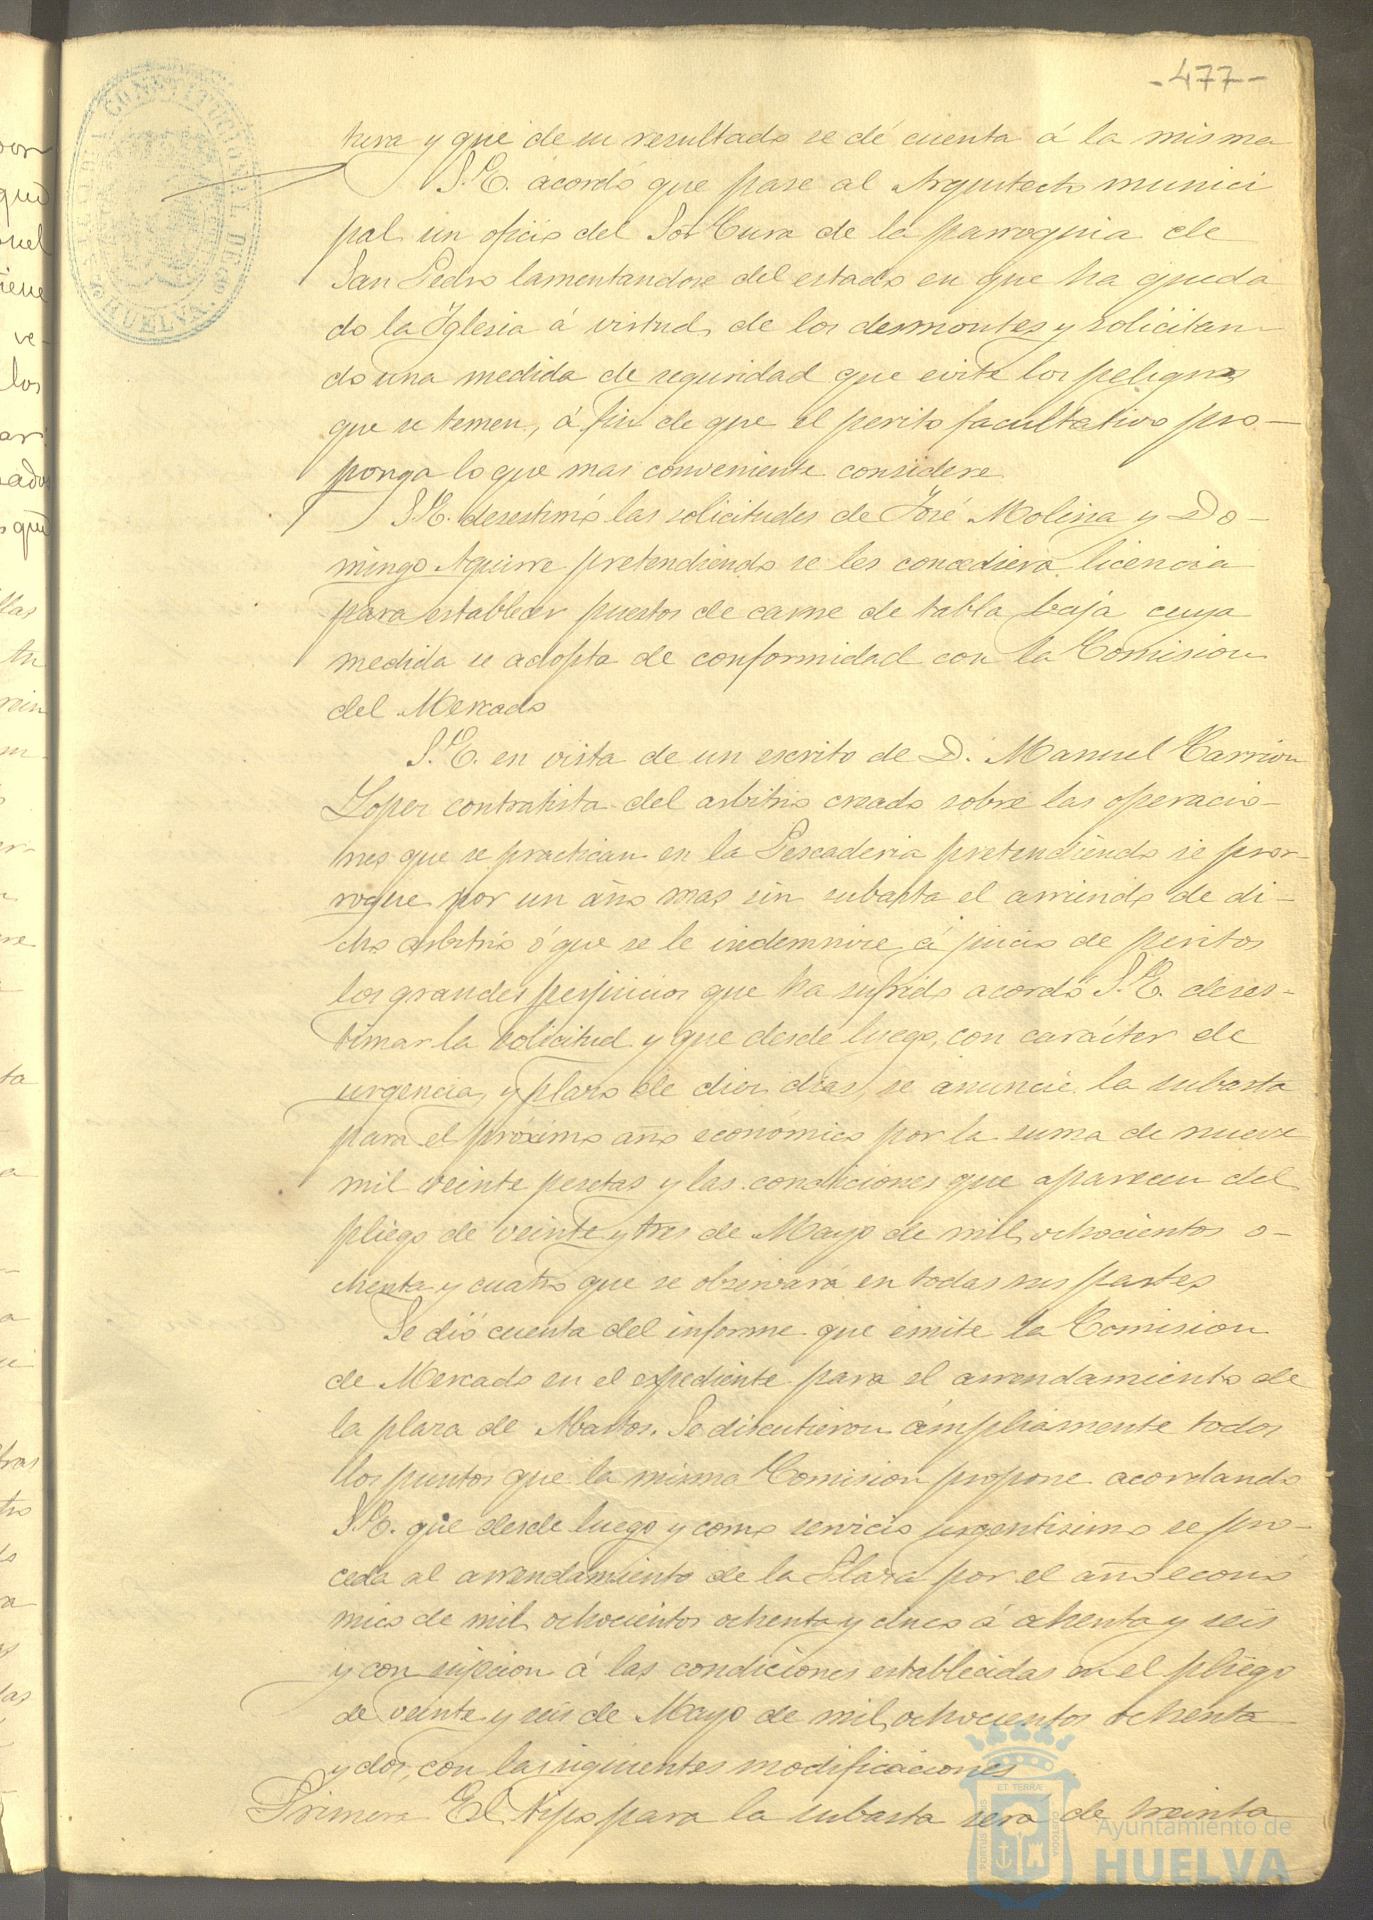 -477-
tura y que de su resultado se dé cuenta á la misma
S.E. acordó que pase al Arquitecto munici
pal un oficio del Sor Cura de la parroquia de
San Pedro lamentandose del estado en que ha queda
do la Iglesia á virtud de los desmontes y solicitan-
do una medida de seguridad que evite los peligros
que se temen, á fin de que el perito facultativo pro-
ponga lo que mas conveniente considere
S.E. desestimó las solicitudes de José Molina y Do-
mingo Aguirre pretendiendo se les concediera licencia
para establecer puestos de carne de tabla baja cuya
medida se adopta de conformidad con la Comision
del Mercado
S.E. en vista de un escrito de D. Manuel Carrion
Lopez contratista del arbitrio creado sobre las operacio-
nes que se practican en la Pescaderia pretendiendo se pror-
rogue por un año mas sin subasta el arriendo de di-
cho arbitrio ó que se le indemnize á juicio de peritos
los grandes perjuicios que ha sufrido acordó S.E. deses-
timar la solicitud y que desde luego, con carácter de
urgencia y plazo de diez dias, se anuncie la subasta
para el próximo año económico por la suma de nueve
mil veinte pesetas y las condiciones que aparecen del
pliego de veinte y tres de Mayo de mil ochocientos o-
chenta y cuatro que se observará en todas sus partes
Se dió cuenta del informe que emite la Comision
de Mercado en el expediente para el arrendamiento de
la plaza de Abastos. Se discutieron ámpliamente todos
los puntos que la misma Comision propone acordando
S.E. que desde luego y como servicio urgentisimo se pro-
ceda al arrendamiento de la Plaza por el año econó
mico de mil ochocientos ochenta y cinco á ochenta y seis
y con sujecion á las condiciones establecidas en el pliego
de veinte y seis de Mayo de mil ochocientos ochenta
y dos, con las siguientes modificaciones
Primera El tipo para la subasta será de treinta
CONSTITUCIONAL DE
HUELVA.
PORTUS MARIS ET TERRÆ CUSTODIA
Ayuntamiento de
HUELVA